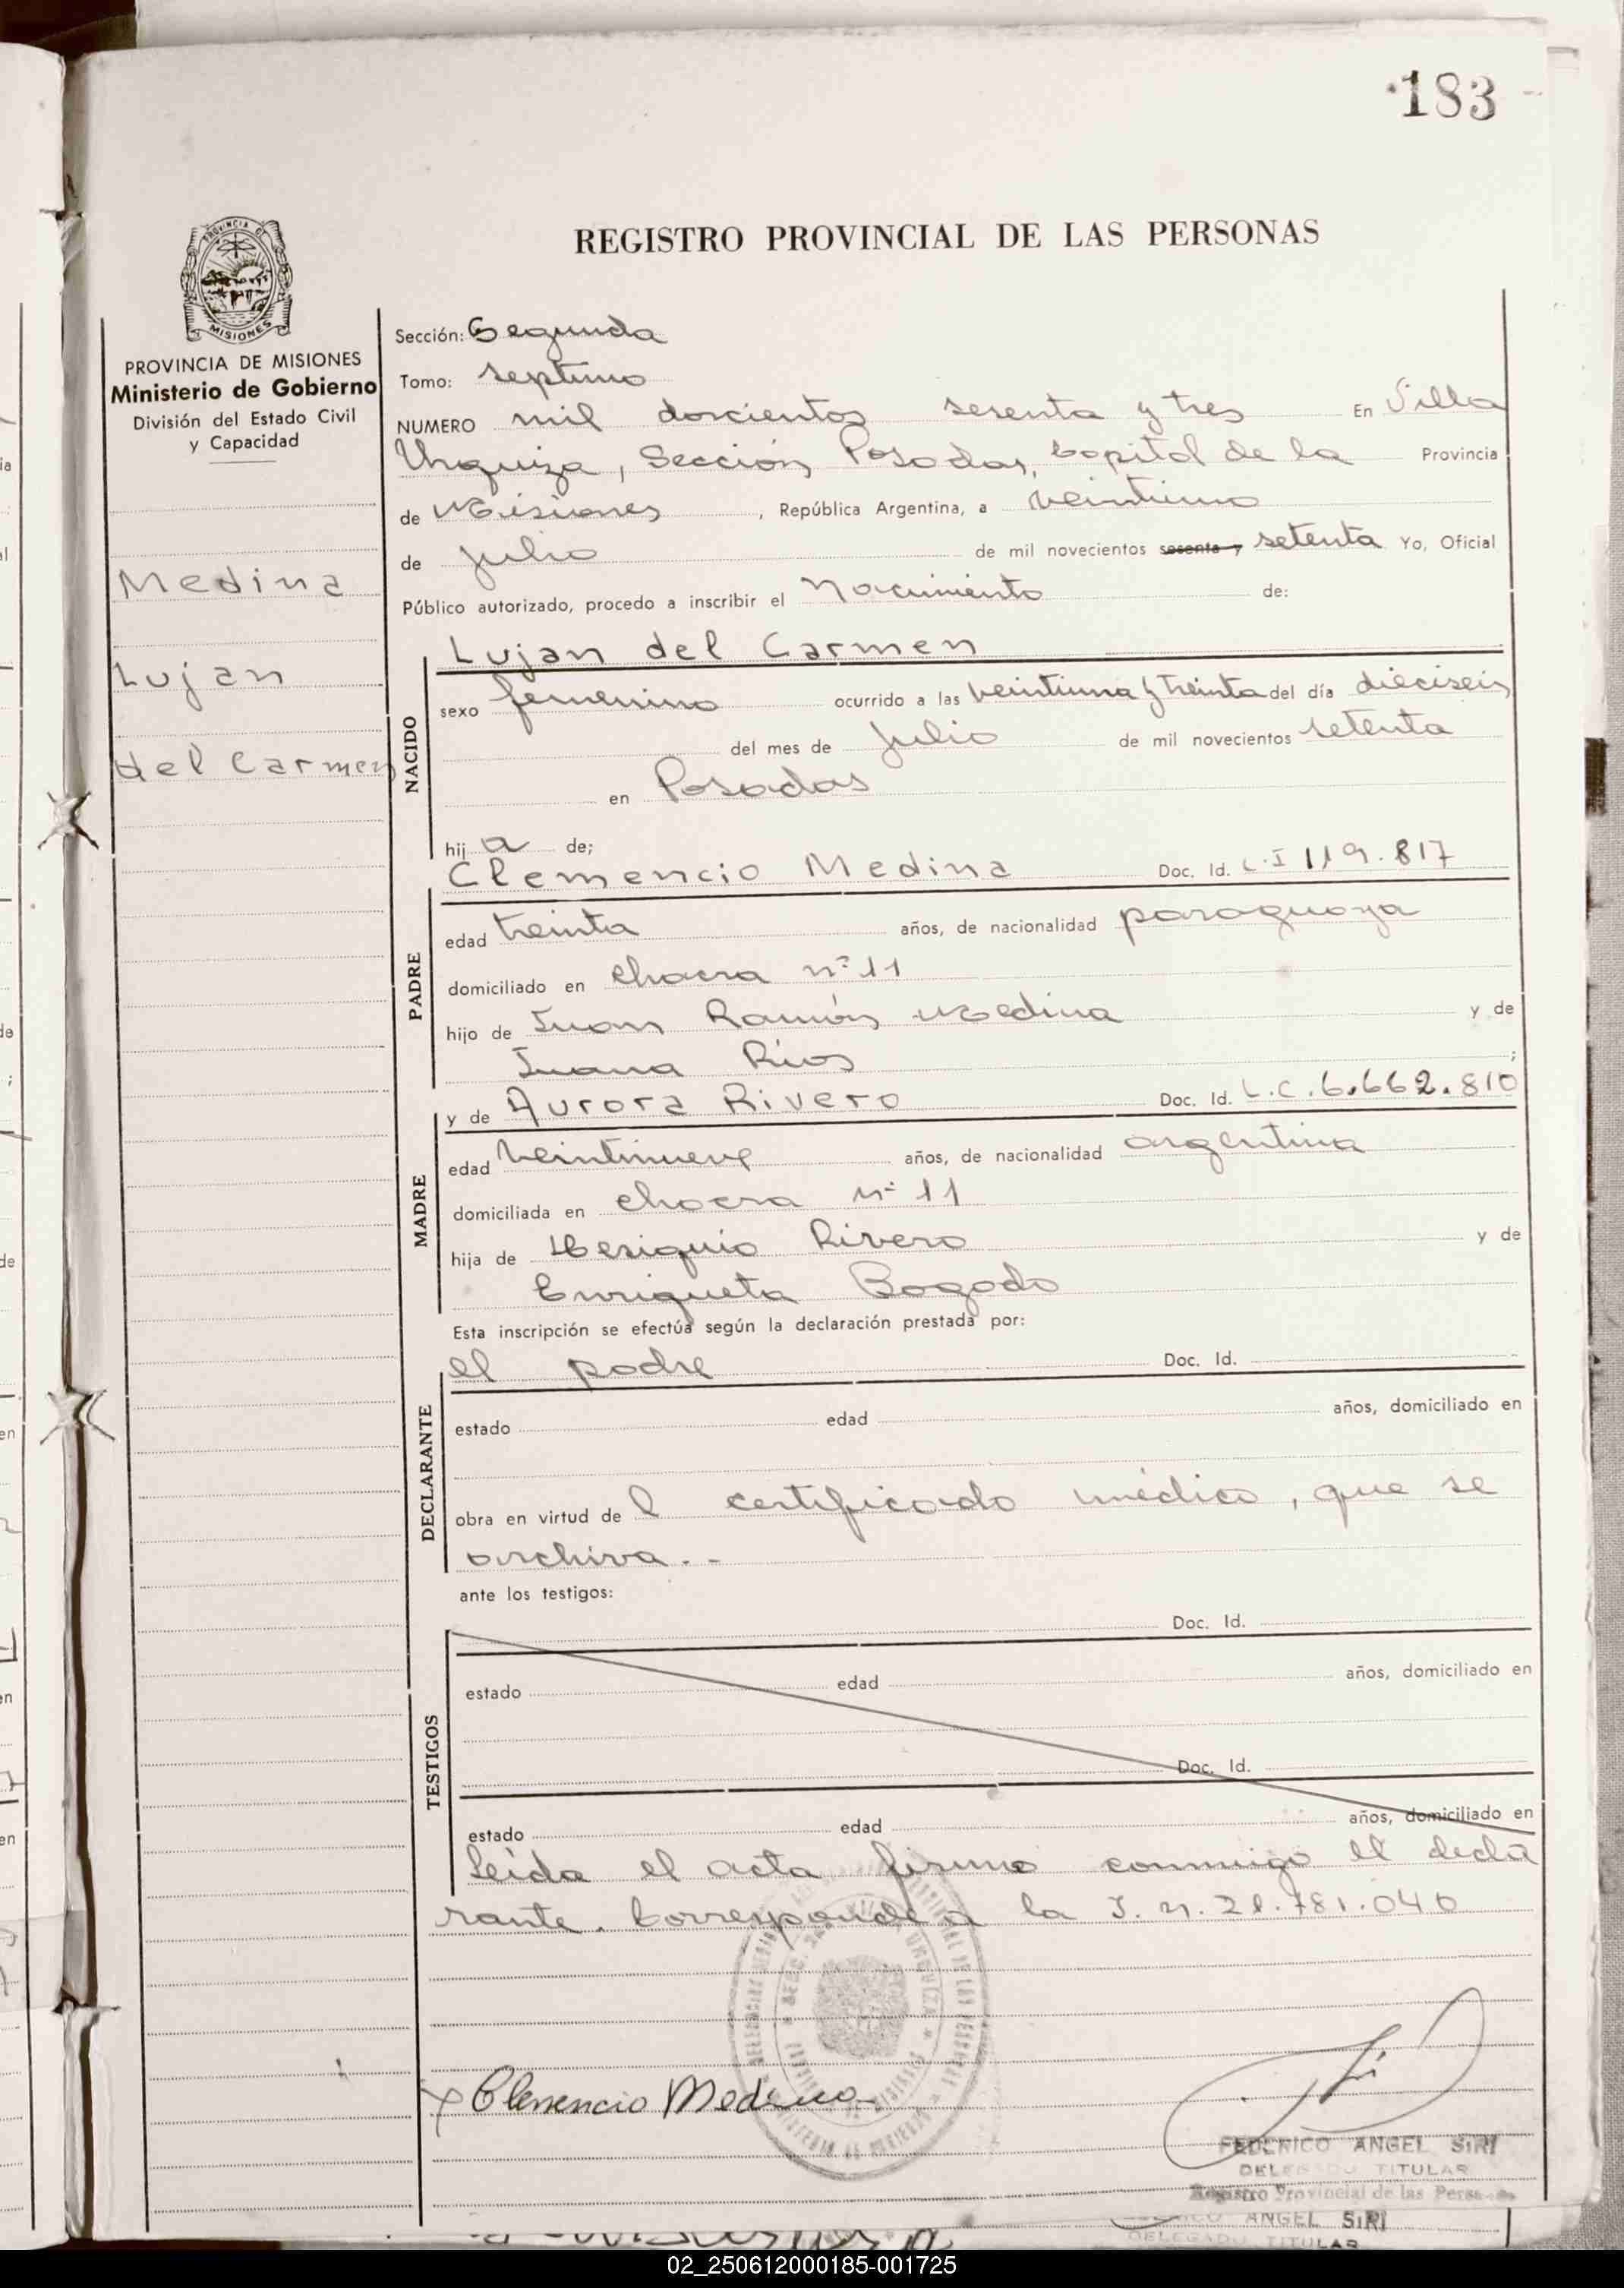 183
REGISTRO PROVINCIAL DE LAS PERSONAS
PROVINCIA DE MISIONES
Ministerio de Gobierno
División del Estado Civil
y Capacidad
Medina
Lujan
del Carmen
Sección: Segunda
Tomo: septimo
NUMERO mil doscientos sesenta y tres En Villa
Urquiza, Sección Posadas, Capital de la Provincia
de Misiones, República Argentina, a veintiuno
de julio de mil novecientos sesenta y setenta Yo, Oficial
Público autorizado, procedo a inscribir el Nacimiento de:
NACIDO
Lujan del Carmen
sexo femenino ocurrido a las veintiuna y treinta del día dieciseis
del mes de julio de mil novecientos setenta
en Posadas
hij a de;
PADRE
Clemencio Medina Doc. Id. C.I 119.817
edad treinta años, de nacionalidad paraguaya
domiciliado en chacra nº 11
hijo de Juan Ramón Medina y de
Juana Ríos ;
MADRE
y de Aurora Rivero Doc. Id. L.C. 6.662.810
edad veintinueve años, de nacionalidad argentina
domiciliada en chacra nº 11
hija de Hesiquio Rivero y de
Enriqueta Bogado
Esta inscripción se efectúa según la declaración prestada por:
DECLARANTE
el padre Doc. Id.
estado edad años, domiciliado en
obra en virtud de l certificado médico, que se
archiva.-
ante los testigos:
TESTIGOS
Doc. Id.
estado edad años, domiciliado en
Doc. Id.
estado edad años, domiciliado en
Leida el acta firma conmigo el decla
rante. Corresponde a la I.N. 21.781.040
Clemencio Medina
FEDERICO ANGEL SIRI
DELEGADO TITULAR
Registro Provincial de las Personas
ANGEL SIRI
DELEGADO TITULAR
02_250612000185-001725